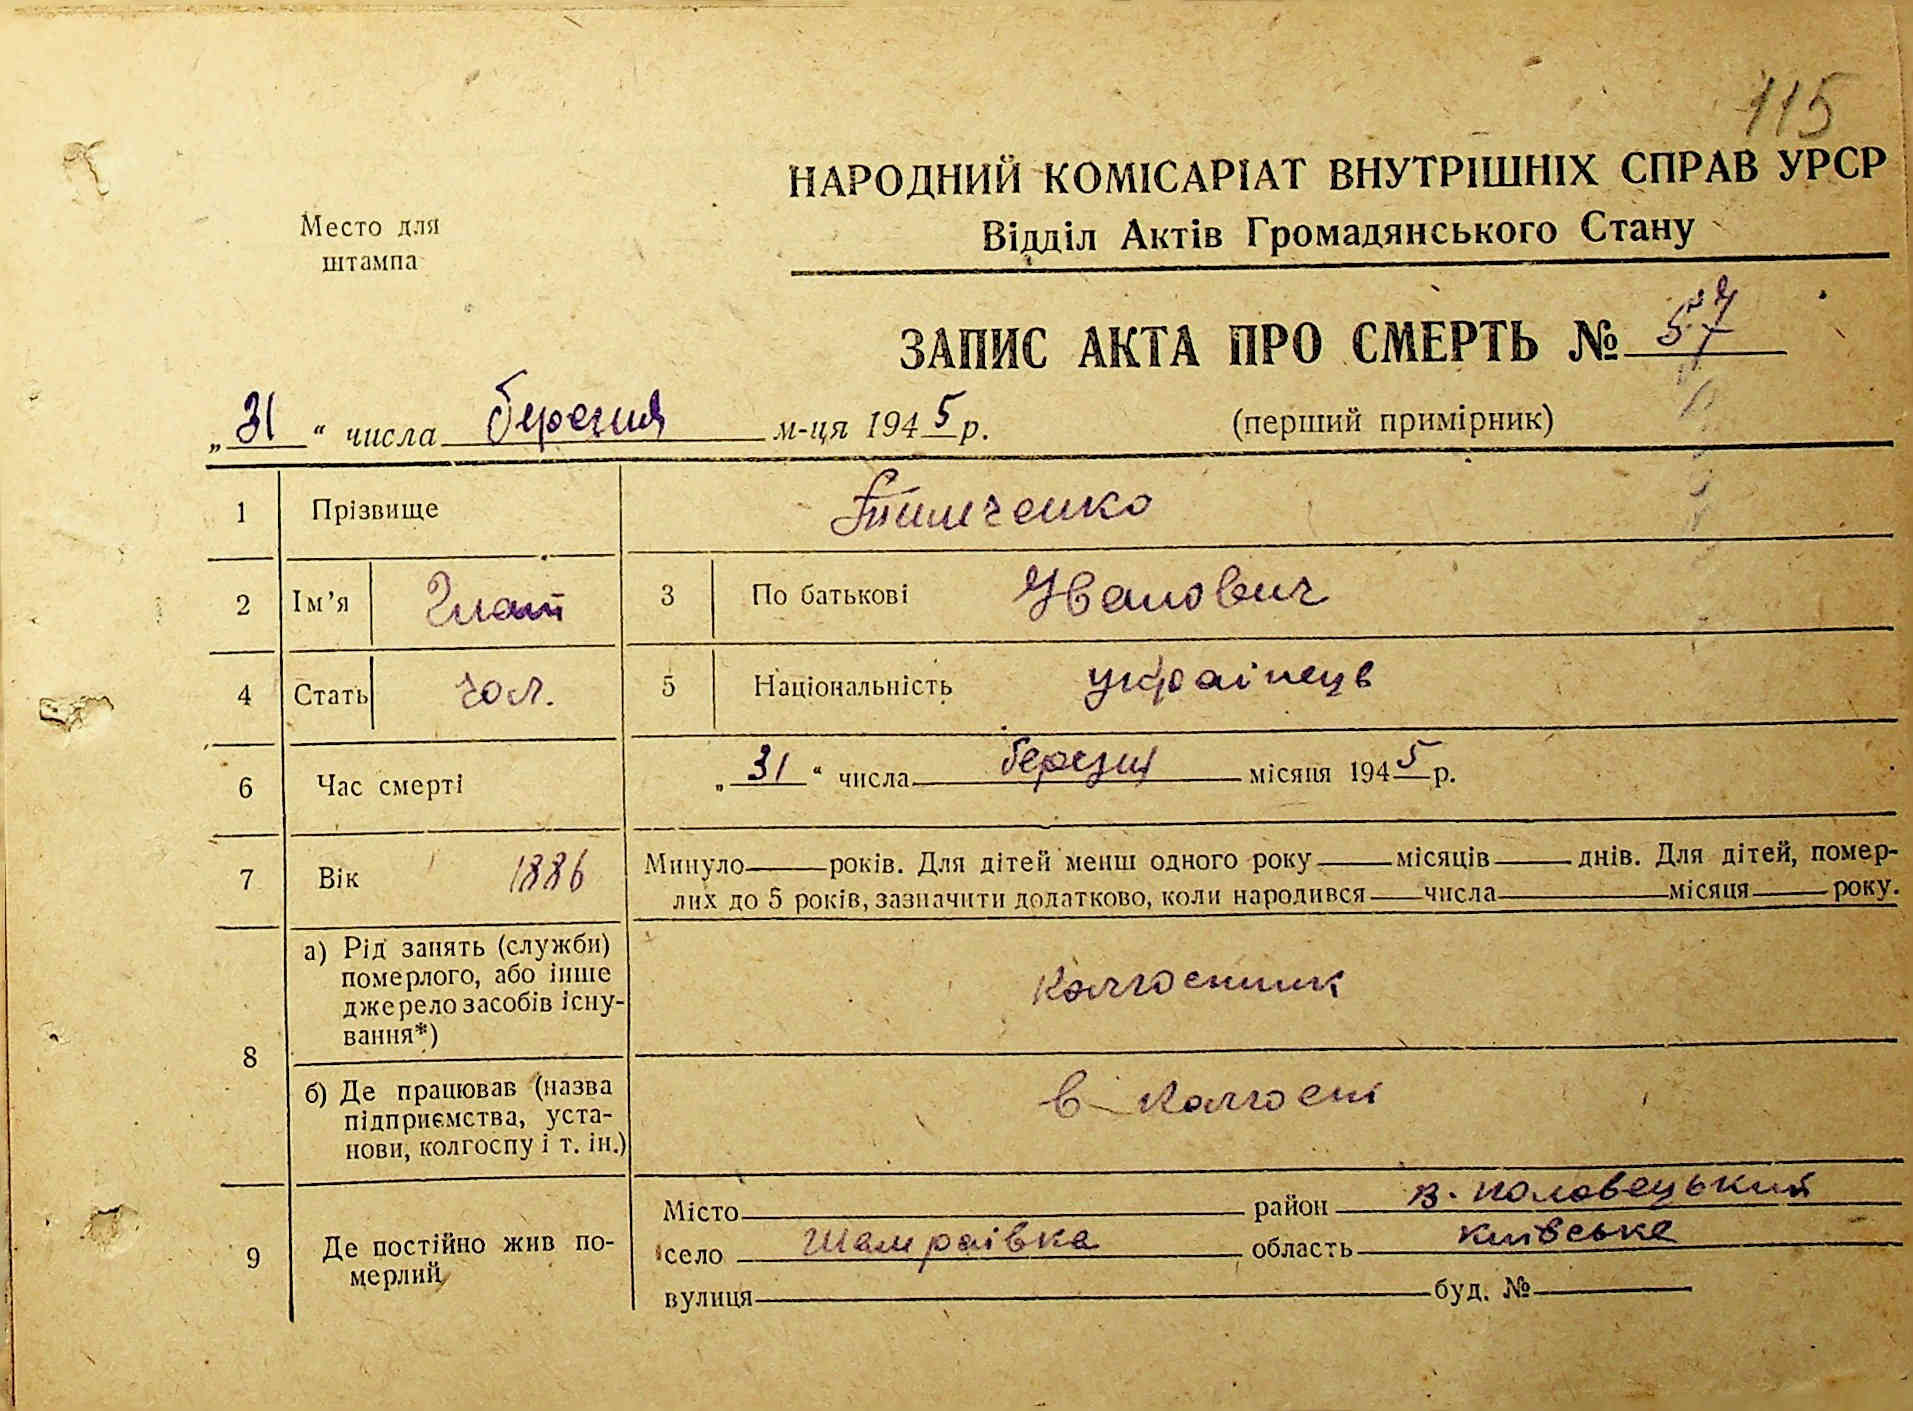 115
НАРОДНИЙ КОМІСАРІАТ ВНУТРІШНІХ СПРАВ УРСР
Відділ Актів Громадянського Стану
Место для
штампа
ЗАПИС АКТА ПРО СМЕРТЬ № 57
„31“ числа березня м-ця 1945 р.
(перший примірник)
1 Прізвище Тимченко
2 Ім’я Гнат 3 По батькові Иванович
4 Стать чол. 5 Національність українець
6 Час смерті „31“ числа березня місяця 1945 р.
7 Вік 1886 Минуло року. Для дітей менш одного року місяців днів. Для дітей, помер-
лих до 5 років, зазначити додатково, коли народився числа місяця року.
8 а) Рід занять (служби)
померлого, або інше
джерело засобів існу-
вання*)
колгоспник
б) Де працював (назва
підприємства, уста-
нови, колгоспу і т. ін.)
в колгоспі
9 Де постійно жив по-
мерлий
Місто район В. Половецький
село Шамраівка область Київська
вулиця буд. №